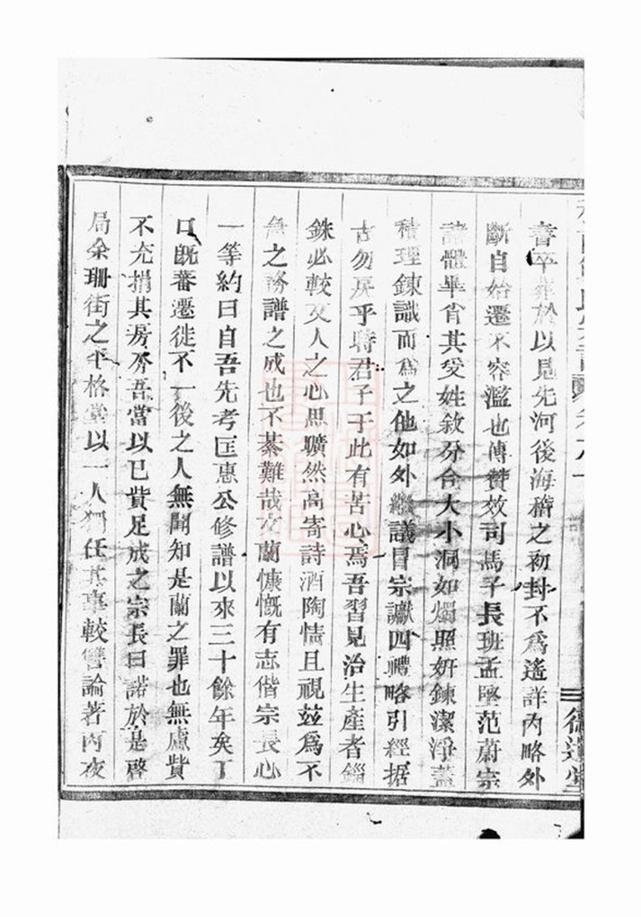 書卒葬於以見先河後海稽之初封不爲遙詳內略外
斷自始遷不容濫也傳贊效司馬子長班孟堅范蔚宗
諸體畢省其受姓敘分合大小洞如燭照姸鍊潔淨蓋
積理鍊識而爲之他如外繼議冒宗讞四禮略引經據
古勿戾乎時君子于此有苦心焉吾習見治生產者錙
銖必較文人之心思曠然高寄詩酒陶情且視茲爲不
急之務譜之成也不綦難哉文蘭慷慨有志偕宗長心
一等約曰自吾先考匡惠公修譜以來三十餘年矣丁
口旣蕃遷徙不一後之人無聞知是蘭之罪也無慮貲
不充捐其房帑吾當以已貲足成之宗長曰諾於是啓
局余珊街之平格堂以一人獨任其事較讐論著丙夜